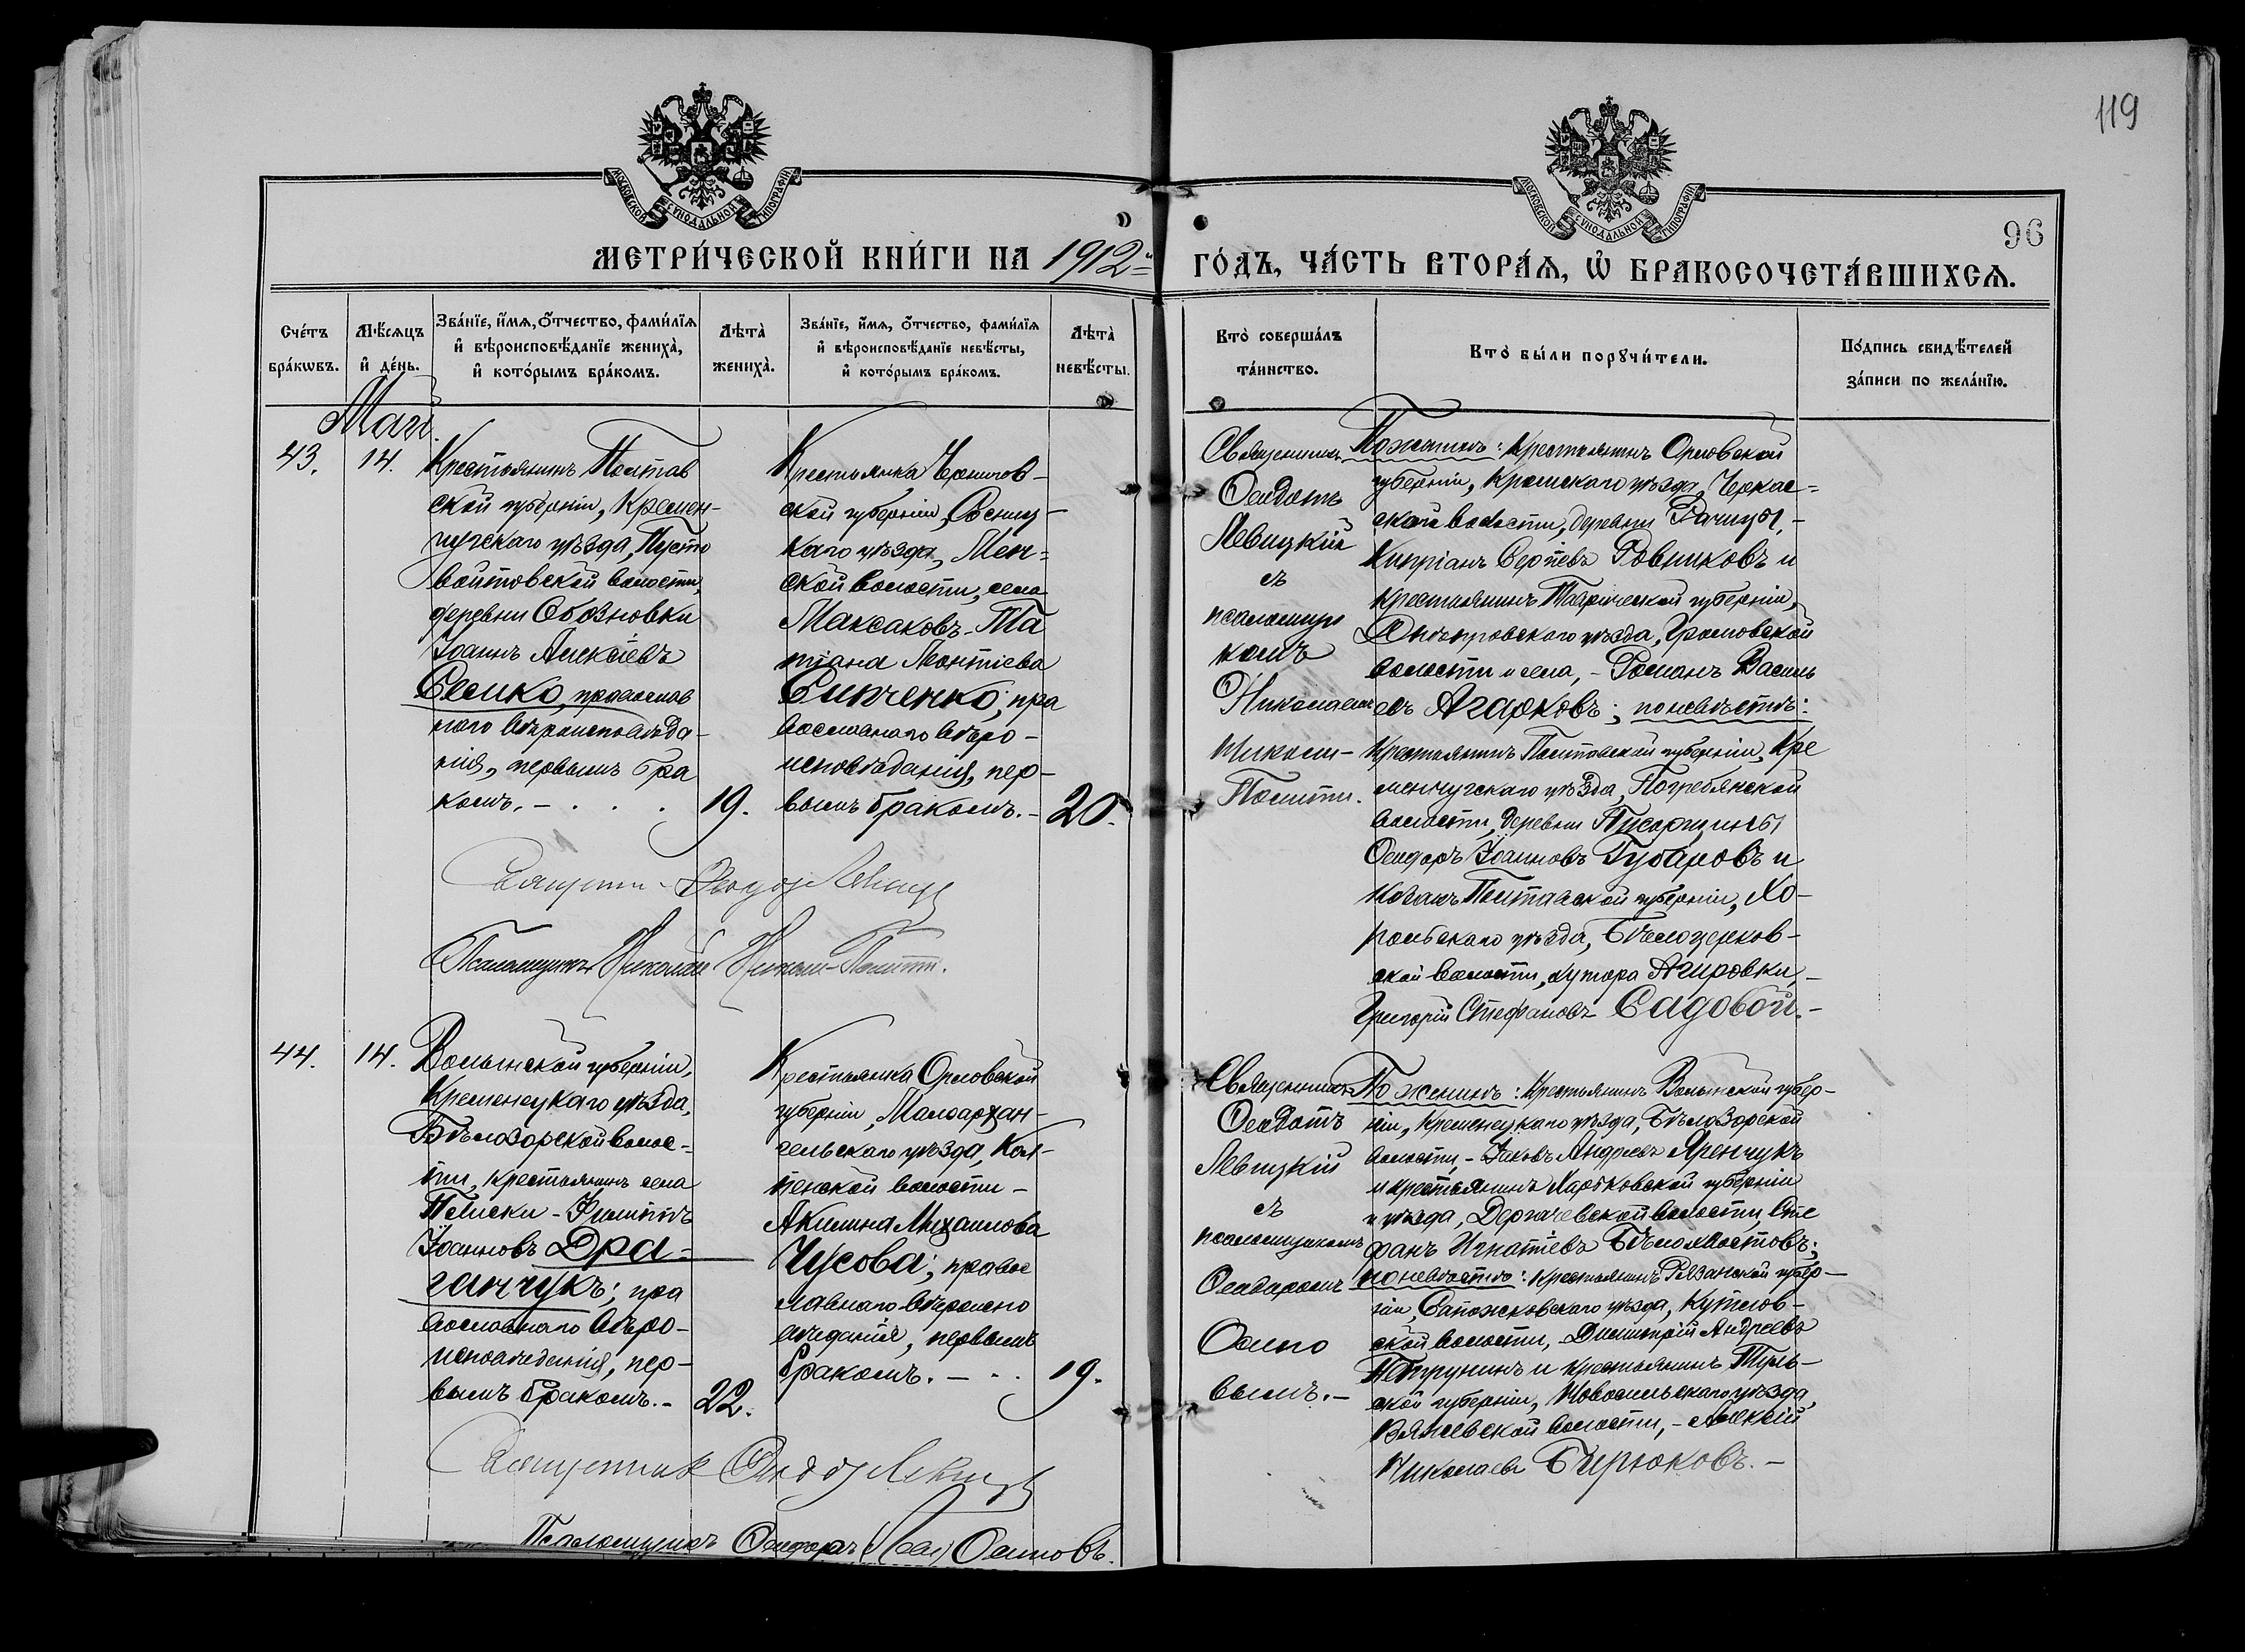 119
96
МОСКОВСКОЙ СУНОДАЛЬНОЙ ТИПОГРАФІИ
МОСКОВСКОЙ СУНОДАЛЬНОЙ ТИПОГРАФІИ
МЕТРИ́ЧЕСКОЙ КНИ́ГИ НА 1912й
ГО́ДЪ, ЧА́СТЬ ВТОРА́Ѧ, Ѡ҆ БРАКОСОЧЕТА́ВШИХСѦ.
Сче́тъ
бра́кѡвъ.
Мѣ́сѧцъ
и҆ де́нь.
Зва́нїе, и҆́мѧ, ѻ҆́тчество, фами́лїѧ
и҆ вѣроисповѣ́данїе жениха̀,
и҆ кото́рымъ бра́комъ.
Лѣта̀
жениха̀.
Зва́нїе, и҆́мѧ, ѻ҆́тчество, фами́лїѧ
и҆ вѣроисповѣ́данїе невѣ́сты,
и҆ кото́рымъ бра́комъ.
Лѣта̀
невѣ́сты.
Кто̀ соверша́лъ
та́инство.
Кто̀ бы́ли порꙋчи́тели.
По́дпись свидѣ́телей
за́писи по жела́нїю.
Май.
43.
14.
Крестьянинъ Полтав
ской губерніи, Кремен-
чугскаго уѣзда, Пусто
войтовской волости,
деревни Обозновки
Іоаннъ Алексіевъ
Сесико, православ
наго вѣроисповѣда-
нія, первымъ бра
комъ. -
19.
Крестьянка Чернигов-
ской губерніи, Сосниц-
каго уѣзда, Мен-
ской волости, села
Максаковъ - Та
тіана Леонтіева
Сипченко; пра
вославнаго вѣро-
исповѣданія, пер-
вымъ бракомъ. -
20.
Священникъ
Ѳеодотъ
Левицкій
съ
псаломщи
комъ
Николаемъ
Николи-
Полити.
По женихѣ: Крестьянинъ Орловской
губерніи, Кромскаго уѣзда, Черкас-
ской волости, деревни Рачицы, -
Кипріанъ Сергіевъ Ровшиковъ и
крестьянинъ Таврической губерніи,
Днѣпровскаго уѣзда, Громовской
волости и села, - Романъ Василь
евъ Агарковъ; по невѣстѣ:
Крестьянинъ Полтавской губерніи, Кре
менчугскаго уѣзда, Погребянской
волости, деревни Писарщины
Ѳеодоръ Іоанновъ Губаровъ и
Козакъ Полтавской губерніи, Хо-
рольскаго уѣзда, Бѣлоцерков-
ской волости, хутора Агировки, -
Григорій Стефановъ Садовой. -
Священникъ
Псаломщикъ Николай Николи-Полити.
44.
14.
Волынской губерніи,
Кременецкаго уѣзда,
Бѣлозорской волос-
ти, крестьянинъ села
Плиски - Филиппъ
Іоанновъ Дра-
ганчукъ; пра
вославнаго вѣро-
исповѣданія, пер-
вымъ бракомъ. -
22.
Крестьянка Орловской
губерніи, Малоархан-
гельскаго уѣзда, Кол-
пенской волости -
Акилина Михаилова
Чусова; правос
лавнаго вѣроиспо
вѣданія, первымъ
бракомъ. -
19.
Священникъ
Ѳеодотъ
Левицкій
съ
псаломщикомъ
Ѳеодоромъ
Осипо
вымъ. -
По женихѣ: Крестьянинъ Волынской губер-
ніи, Кременецкаго уѣзда, Бѣлозорской
волости, - Іаковъ Андреевъ Яренчукъ
и крестьянинъ Харьковской губерніи
и уѣзда, Дергачевской волости, Сте
фанъ Игнатіевъ Бѣлохвостовъ;
по невѣстѣ: Крестьянинъ Рязанской губер-
ніи, Сапожковскаго уѣзда, Кутлов-
ской волости, - Димитрій Андреевъ
Петрунинъ и крестьянинъ Туль-
ской губерніи, Новосильскаго уѣзда,
Вяжевской волости, - Алексій
Николаевъ Бирюковъ. -
Священникъ
Псаломщикъ Ѳеодоръ Осиповъ.